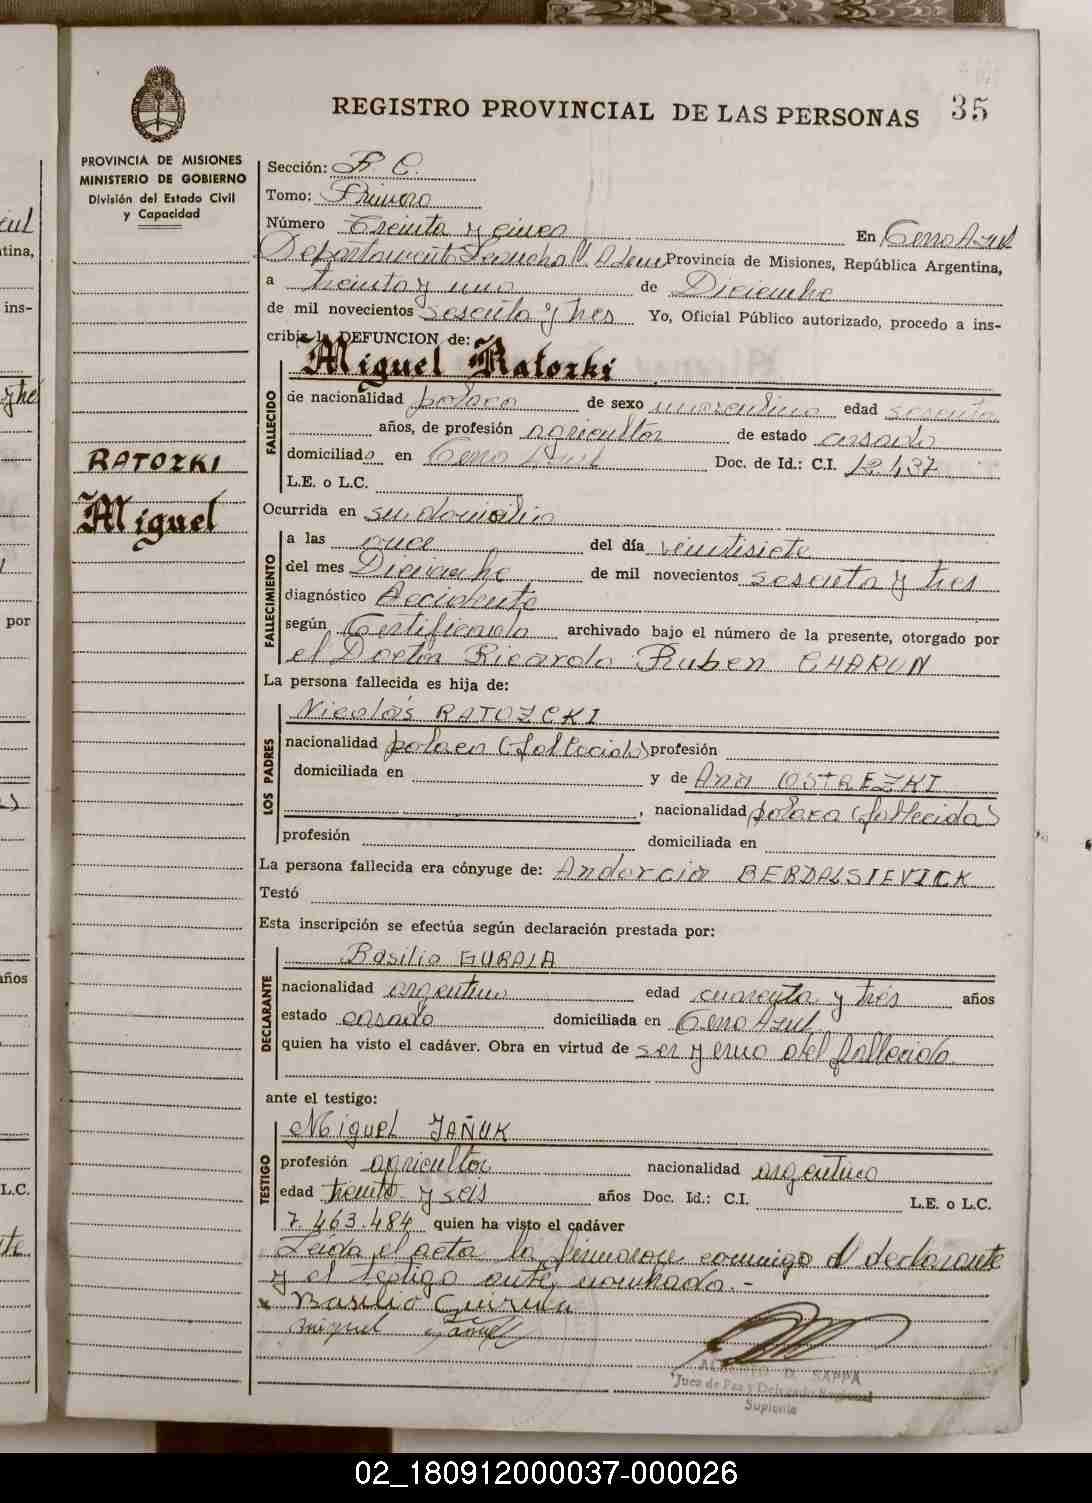 REGISTRO PROVINCIAL DE LAS PERSONAS 35
PROVINCIA DE MISIONES
MINISTERIO DE GOBIERNO
División del Estado Civil
y Capacidad
RATOZKI
Miguel
Sección: F. C.
Tomo: Primero
Número Treinta y cinco En Cerro Azul
Departamento Leandro N. Alem Provincia de Misiones, República Argentina,
a treinta y uno de Diciembre
de mil novecientos sesenta y tres Yo, Oficial Público autorizado, procedo a ins-
cribir la DEFUNCION de:
Miguel Ratozki
FALLECIDO
de nacionalidad polaca de sexo masculino edad sesenta
años, de profesión agricultor de estado casado
domiciliado en Cerro Azul Doc. de Id.: C.I. 12.437
L.E. o L.C.
Ocurrida en su domicilio
FALLECIMIENTO
a las once del día veintisiete
del mes Diciembre de mil novecientos sesenta y tres
diagnóstico Accidente
según Certificado archivado bajo el número de la presente, otorgado por
el Doctor Ricardo Ruben CHARUN
La persona fallecida es hija de:
LOS PADRES
Nicolás RATOZCKI
nacionalidad polaca (fallecido) profesión
domiciliada en y de Ana OSTREZKI
, nacionalidad polaca (fallecida)
profesión domiciliada en
La persona fallecida era cónyuge de: Andorcia BERDALSIEVICK
Testó
Esta inscripción se efectúa según declaración prestada por:
DECLARANTE
Basilio GURALA
nacionalidad argentino edad cuarenta y trés años
estado casado domiciliada en Cerro Azul
quien ha visto el cadáver. Obra en virtud de ser yerno del fallecido.
ante el testigo:
TESTIGO
Miguel JAÑUK
profesión agricultor nacionalidad argentino
edad treinta y seis años Doc. Id.: C.I. L.E. o L.C.
7.463.484 quien ha visto el cadáver
Leída el acta la firmaron conmigo el declarante
y el testigo ante nombrado.-
x Basilio
Miguel
SAPPA
Juez de Paz y Delegado Regional
Suplente
02_180912000037-000026